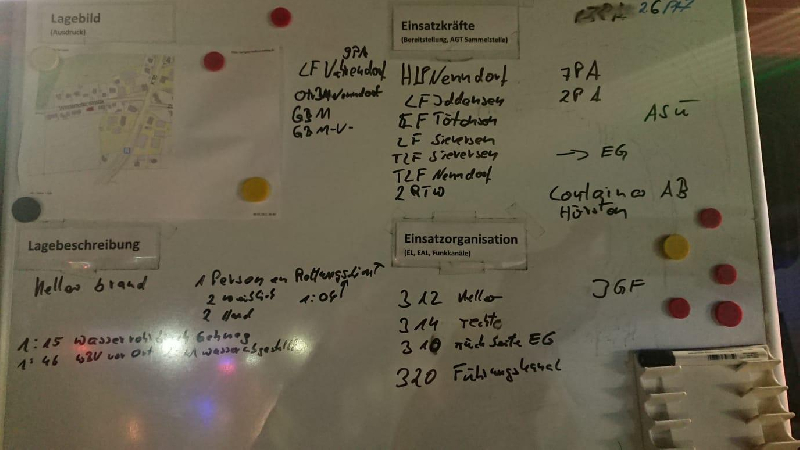 Lagebild
(Ausdruck)
Einsatzkräfte
(Bereitstellung, AGT Sammelstelle)
26 PA
9PA
LF
OrtBM Nenndorf
GBM
GBM-V-
HLF Nenndorf
LF Iddensen
LF Tötensen
LF Sieversen
TLF Sieversen
TLF Nenndorf
2 RTW
7PA
2PA
ASÜ
→ EG
Container AB
Hörsten
Lagebeschreibung
Kellerbrand
1 Person an Rettungsdienst
2 weiblich
1:04
2 Hund
1:15 Wasserrohrbruch
1:46 vor Ort
Einsatzorganisation
(EL, EAL, Funkkanäle)
312 Keller
314 rechte
310 rückseite EG
320 Führungskanal
3GF